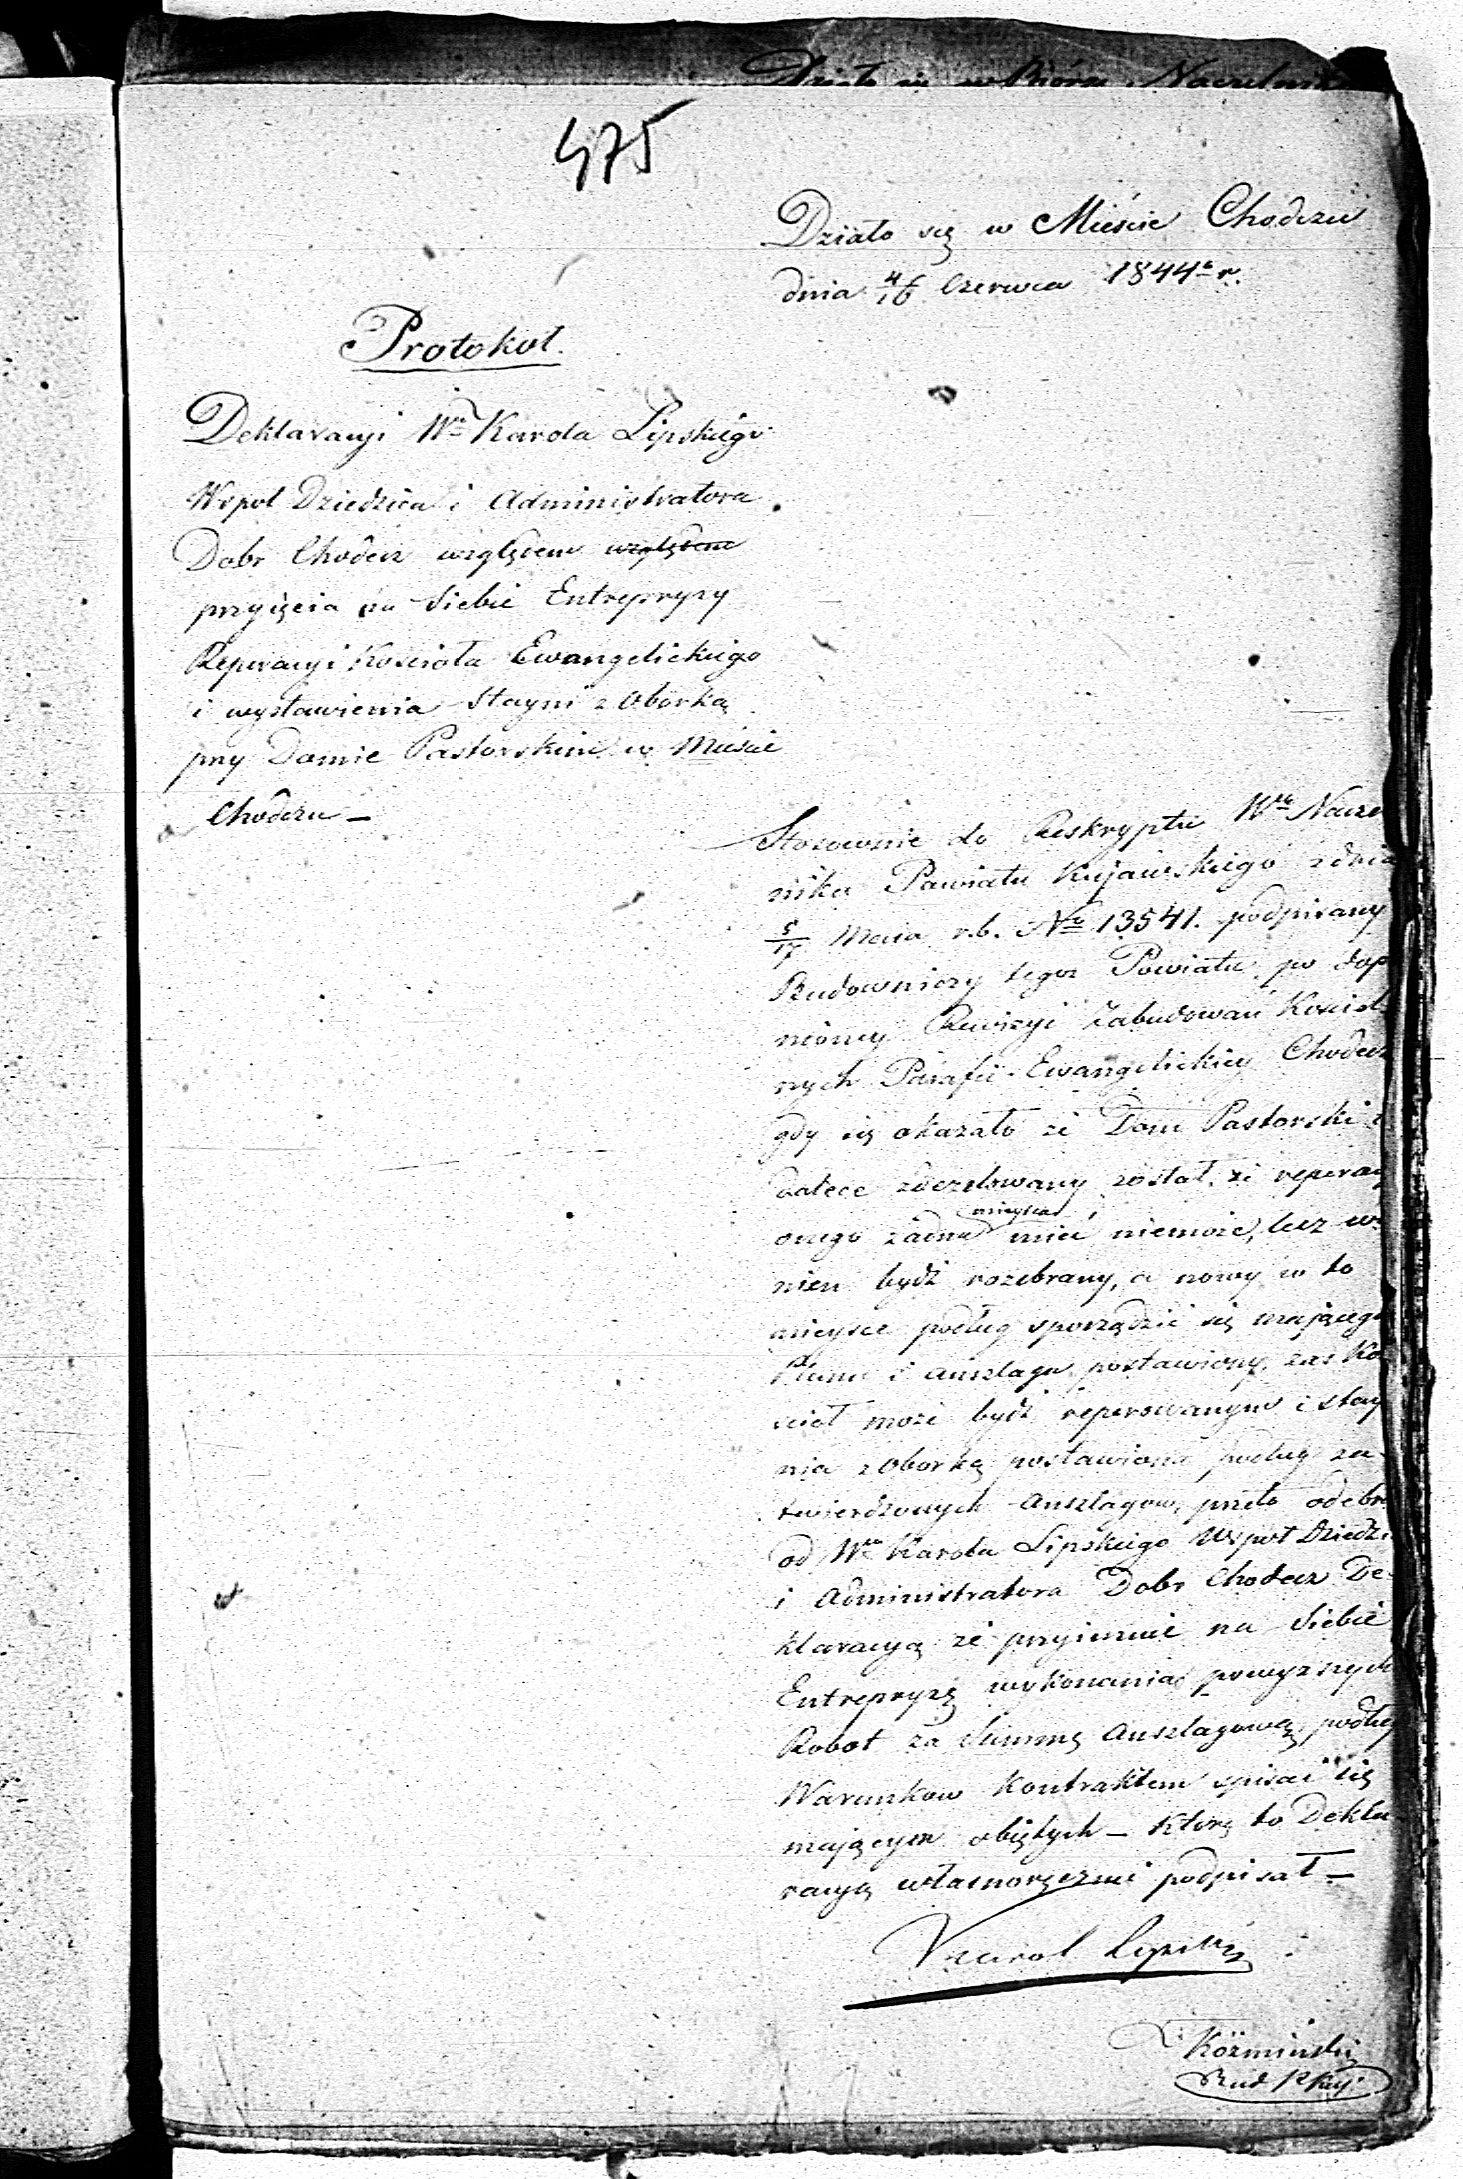 Działo się w Biórze Naczelnik
475
Działo się w Mieście Chodczu
dnia 4/16 Czerwca 1844 r.
Protokół.
Deklaracyi Wgo Karola Lipskiego
Wspoł Dziedzica i Administratora
Dobr Chodecz względem względem
przyięcia na Siebie Entrepryzy
Reperacyi Kościoła Ewangelickiego
i wystawienia Stayni z Oborką
przy Domie Pastorskim w Mieście
Chodczu –
Stosownie do Reskryptu Wgo Naczel
nika Powiatu Kujawskiego z dnia
5/17 Maia r.b. No 13541. podpisany
Budowniczy tegoz Powiatu, po dop
nioney Rewizyi Zabudowań Kościel
nych Parafii Ewangelickiey Chodecz
gdy się okazało ze Dom Pastorski
dalece zdezelowany został, ze reperacy
onego żadna mieysca mieć niemoże, lecz wi
nien bydź rozebrany, a nowy w to
mieysce podług sporządzić się mającego
Planu i anszlagu postawiony, zaś Ko
scioł może bydź reperowanym i stay
nia z Oborką postawiona podług za-
twierdzonych Anszlagow, przeto odebra
od Wgo Karola Lipskiego Wspoł Dziedzi
i Administratora Dobr Chodecz De-
klaracyą ze przyimuie na Siebie
Entrepryzę wykonania powyzszych
Robot za Summę Anszlagową, podług
Warunkow Kontraktem spisać się
mającym obiętych – Którę to Dekla-
racyą własnoręcznie podpisał –
Karol Lipski
Koźmiński
Bud P Kuj.